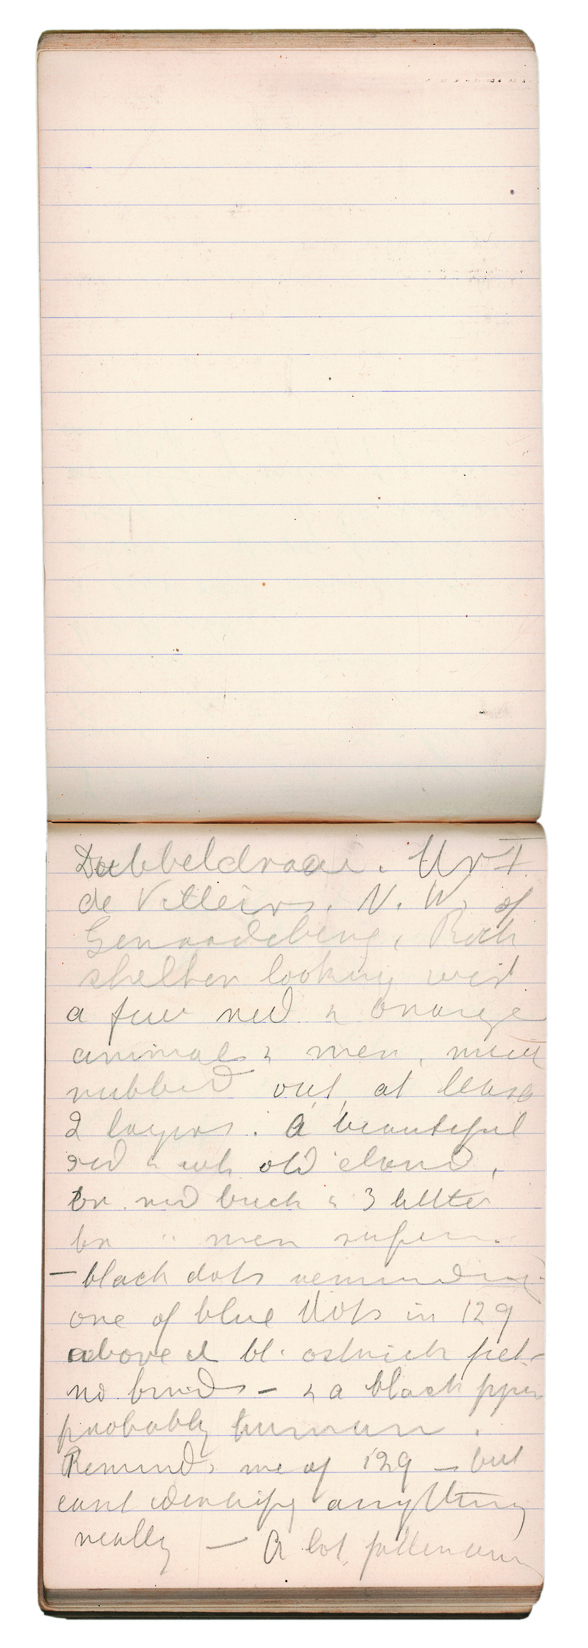 Dubbeldraai. Mr I
de Villeirs. N. W. of
Genaadeberg, Rock
shelter looking west
a few red & orange
animals & men, much
rubbed out, at least
2 layers. A beautiful
red & wh old eland,
br red buck & 3 little
br " men superim.
— black dots reminding
one of blue dots in 129
above it bl. ostrich feet
no birds – & a black
probably human.
Reminds me of 129 – but
cant identify anything
really — A lot fallen